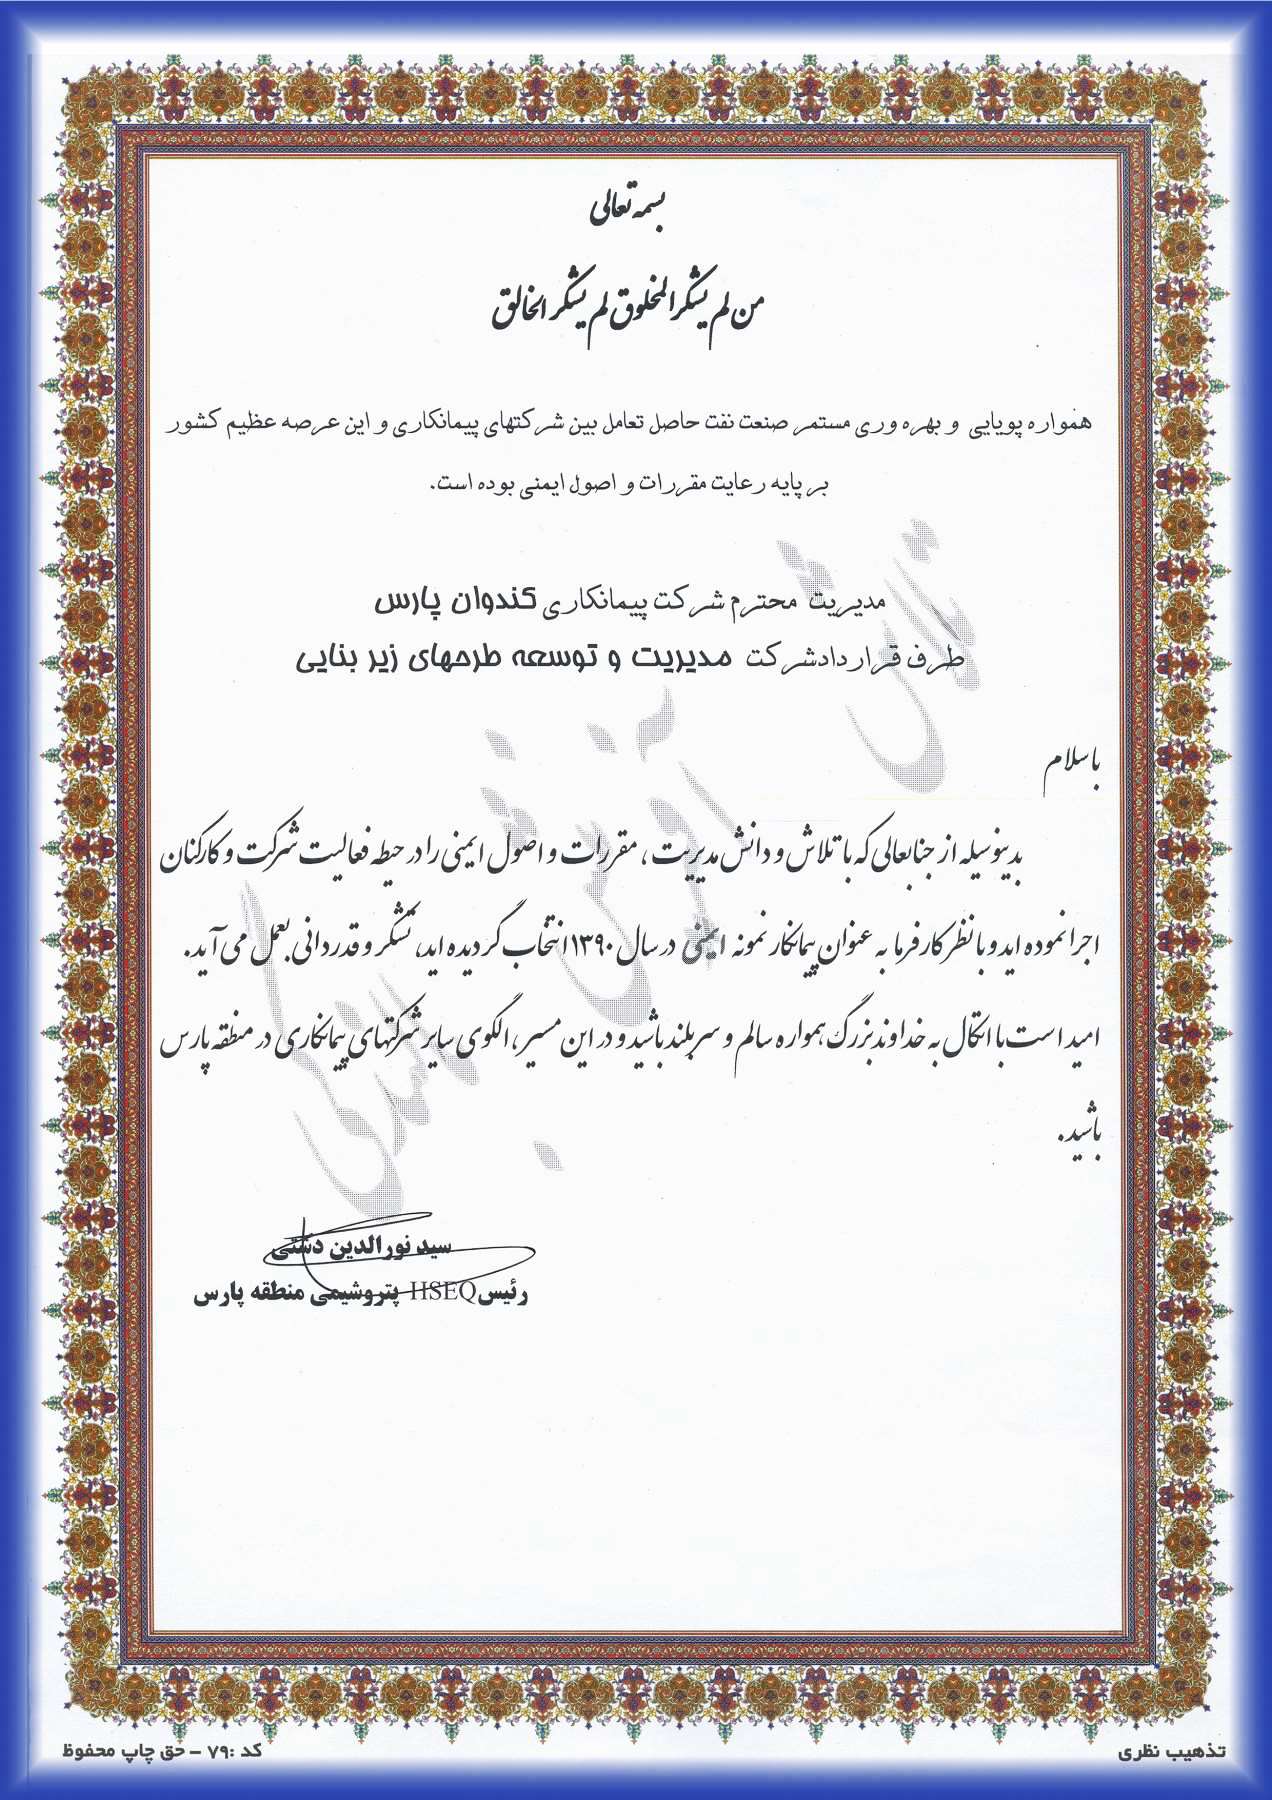 بسمه تعالی
من لم یشکر المخلوق لم یشکر الخالق
همواره پویایی و بهره وری مستمر صنعت نفت حاصل تعامل بین شرکتهای پیمانکاری و این عرصه عظیم کشور
بر پایه رعایت مقررات و اصول ایمنی بوده است.
مدیریت محترم شرکت پیمانکاری کندوان پارس
طرف قرار دادشرکت مدیریت و توسعه طرحهای زیر بنایی
با سلام
بدینوسیله از جنابعالی که با تلاش و دانش مدیریت ، مقررات و اصول ایمنی را در حیطه فعالیت شرکت و کارکنان
اجرا نموده اید و با نظر کارفرما به عنوان پیمانکار نمونه ایمنی در سال ۱۳۹۰ انتخاب گردیده اید، تشکر و قدردانی بعمل می آید.
امید است با اتکال به خداوند بزرگ همواره سالم و سربلند باشید و در این مسیر ، الگوی سایر شرکتهای پیمانکاری در منطقه پارس
باشید.
سید نورالدین دشتی
رئیس HSEQ پتروشیمی منطقه پارس
تذهیب نظری
کد :۷۹ - حق چاپ محفوظ